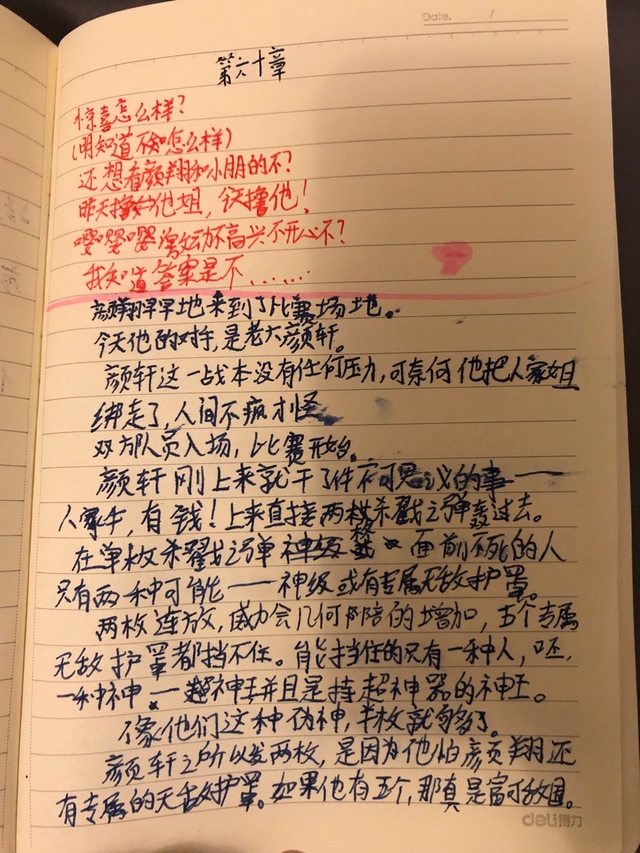 Date. /
第六十章
惊喜怎么样?
(明知道不知怎么样)
还想看颜翔和小朋的不?
昨天撸他姐,今天撸他!
嘤嘤嘤激动不高兴不开心不?
我知道答案是不......
颜翔早早地来到了比赛场地。
今天他的对手,是老大颜轩。
颜轩这一战本没有任何压力,可奈何他把人家姐
绑走了,人间不疯才怪
双方队员入场,比赛开始。
颜轩刚上来就干了件不可思议的事——
人家牛,有钱!上来直接两枚杀戮之弹轰过去。
在单枚杀戮之弹神级 面前不死的人
只有两种可能——神级或有专属无敌护罩。
两枚连放,威力会几何阶陪的增加,五个专属
无敌护罩都挡不住。能挡住的只有一种人,呸,
一种神。——超神王并且是持超神器的神王。
像他们这种伪神,半枚就够了。
颜轩之所以发两枚,是因为他怕颜翔还
有专属的无敌护罩。如果他有五个,那真是富可敌国。
deli得力